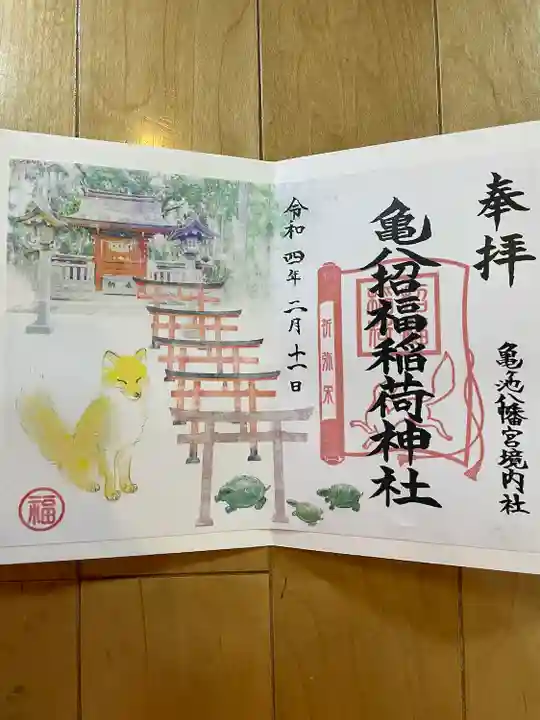 奉拝
亀池八幡宮境内社
亀八招福稲荷神社
祈弥栄
令和四年二月十一日
福